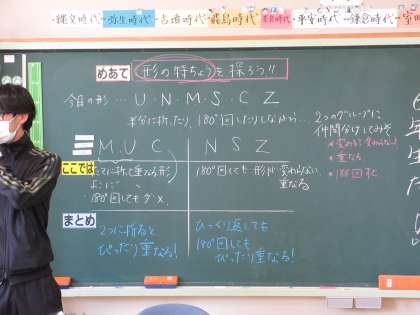 縄文時代 弥生時代 古墳時代 飛鳥時代 奈良時代 平安時代 鎌倉時代 室
めあて 形の特ちょうを探ろう!!
今日の形… U・N・M・S・C・Z
半分に折ったり、180°回したりしながら…
2つのグループに
仲間分けしてみよう
変わる？変わらない？
重なる
180°回すと
M U C
N S Z
ここでは
たてに折って重なる形
よこに 〃
180°回してもダメ
180°回しても形が変わらない
重なる
まとめ
2つに折ると
ぴったり重なる!
ひっくり返しても
180°回しても
ぴったり重なる!